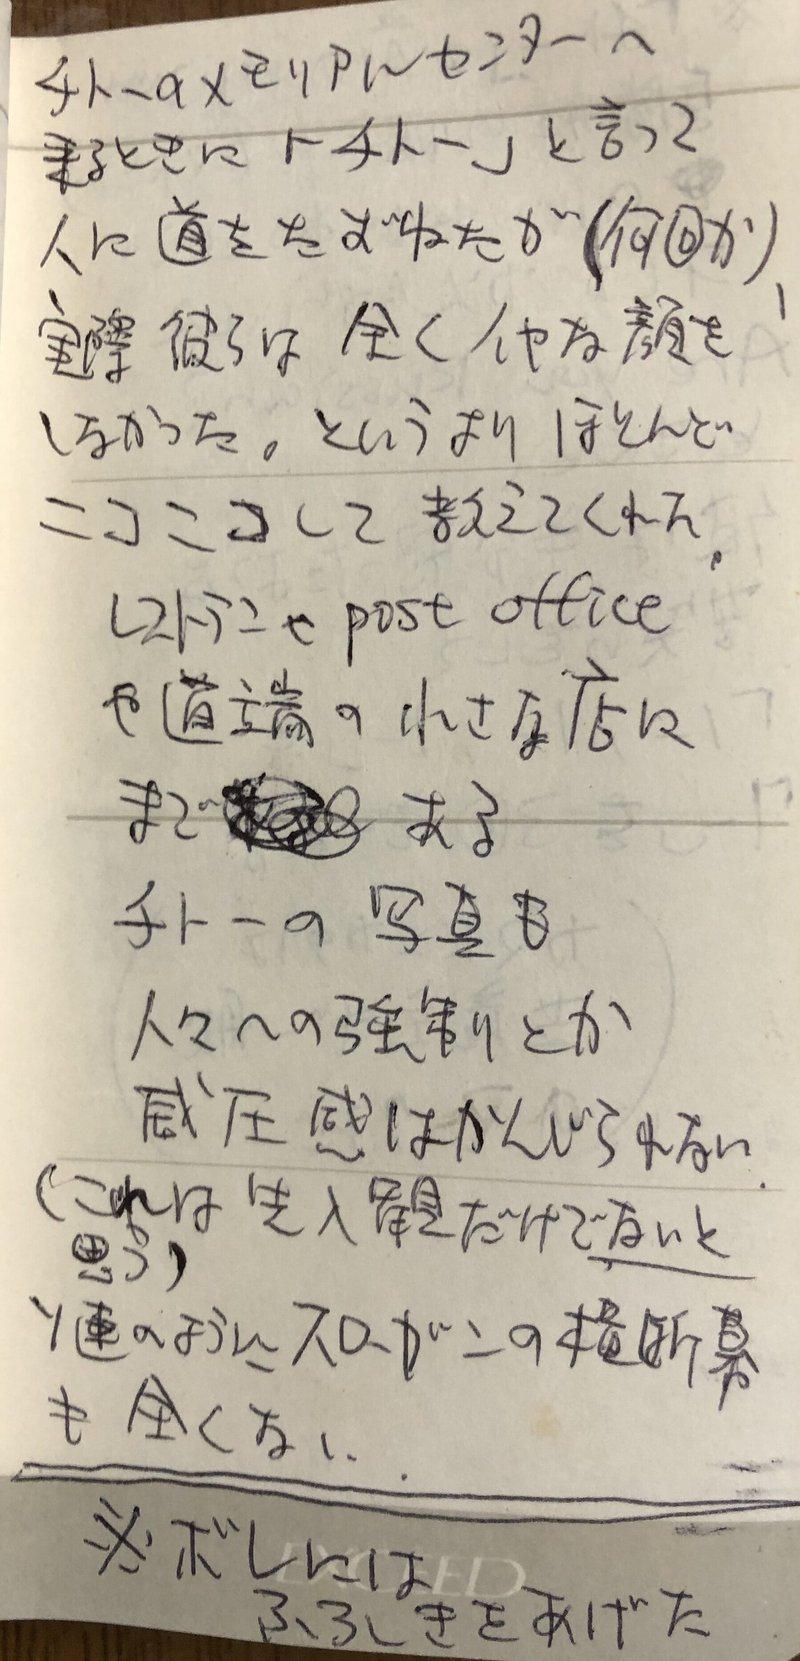 チトーのメモリアルセンターへ
来るときに「チトー」と言って
人に道をたずねたが(何回か)、
実際彼らは全くイヤな顔を
しなかった。というよりほとんど
ニコニコして教えてくれた。
レストランやpost office
や道端の小さな店に
まである
チトーの写真も
人々への強制とか
威圧感はかんじられない.
(これは先入観だけでないと
思う)
ソ連のようにスローガンの横断幕
も全くない.
※ボレには
ふろしきをあげた